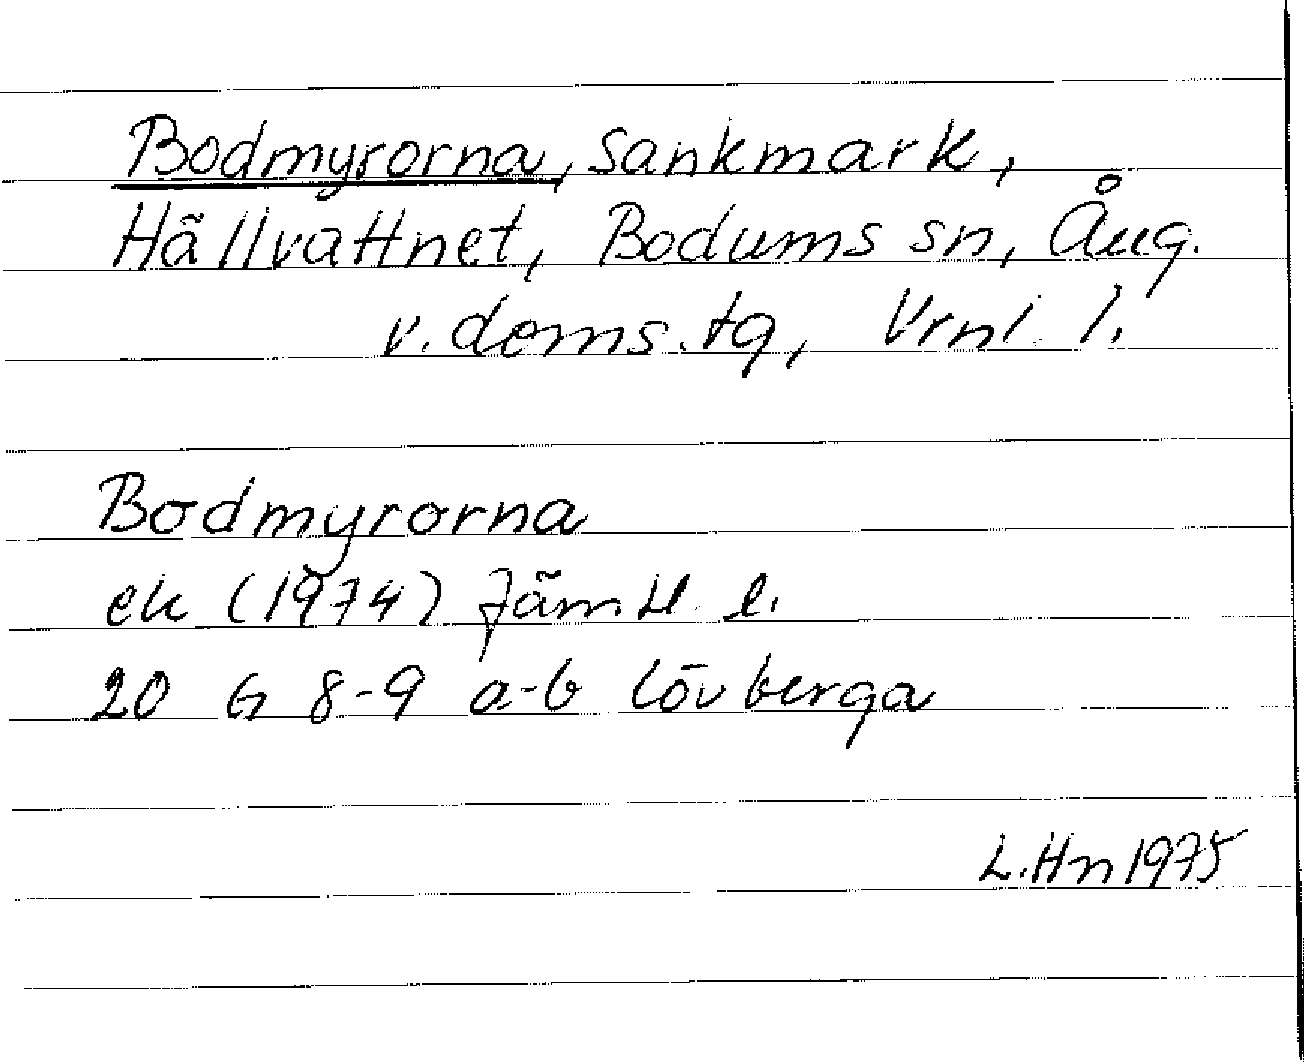 Bodmyrorna, sankmark,
Hällvattnet, Bodums sn, Ång.
v. doms. tg, Vrnl l.
Bodmyrorna
ek (1974) Jämtl. l.
20 G 8-9 a-b Lövberga
L.Hn 1975